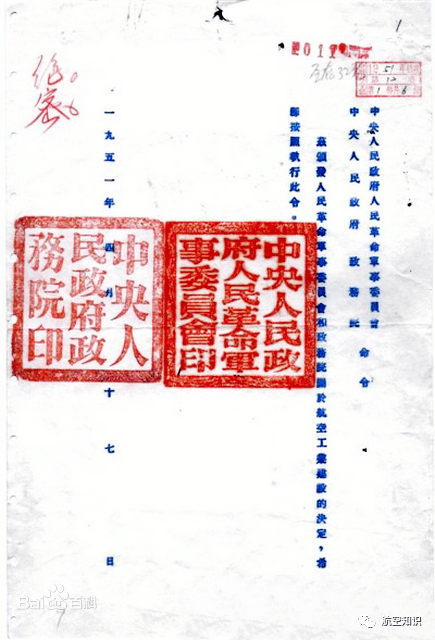 1
中央人民政府人民革命軍事委員會
中央人民政府 政務院
命令
茲頒發人民革命軍事委員會和政務院關於航空工業建設的決定，希
即按照執行此令。
中央人民政
府人民革命軍
事委員會印
中央人
民政府政
務院印
一九五一年四月十七日
絕密
Bai百科
航空知识